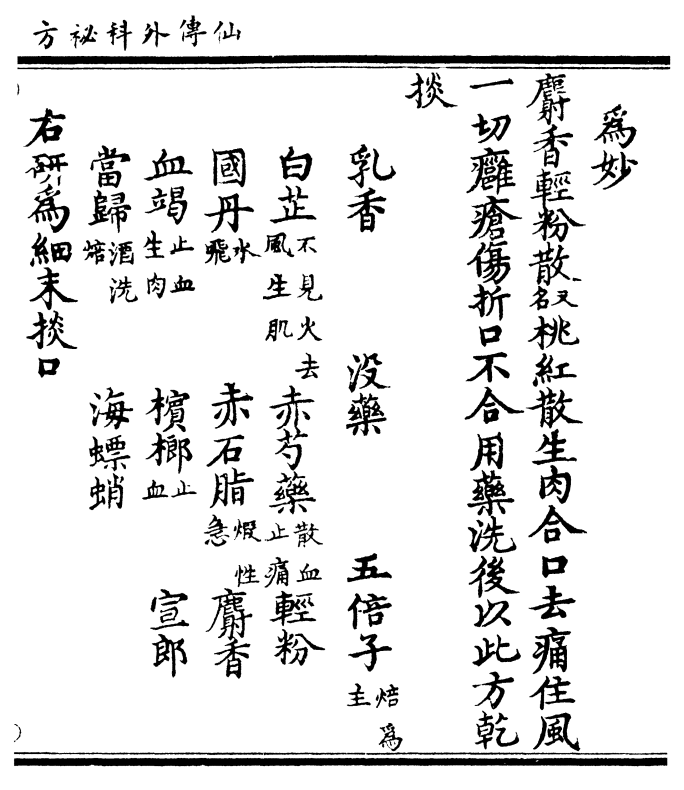 仙傳外科祕方
爲妙
麝香輕粉散又名桃紅散生肉合口去痛住風
一切癰瘡傷折口不合用藥洗後以此方乾
掞
乳香 没藥 五倍子焙爲主
白芷不見火去風生肌 赤芍藥散血止痛 輕粉
國丹水飛 赤石脂煅性急 麝香
血竭止血生肉 檳榔止血 宣郎
當歸酒洗焙 海螵蛸
右研爲細末掞口